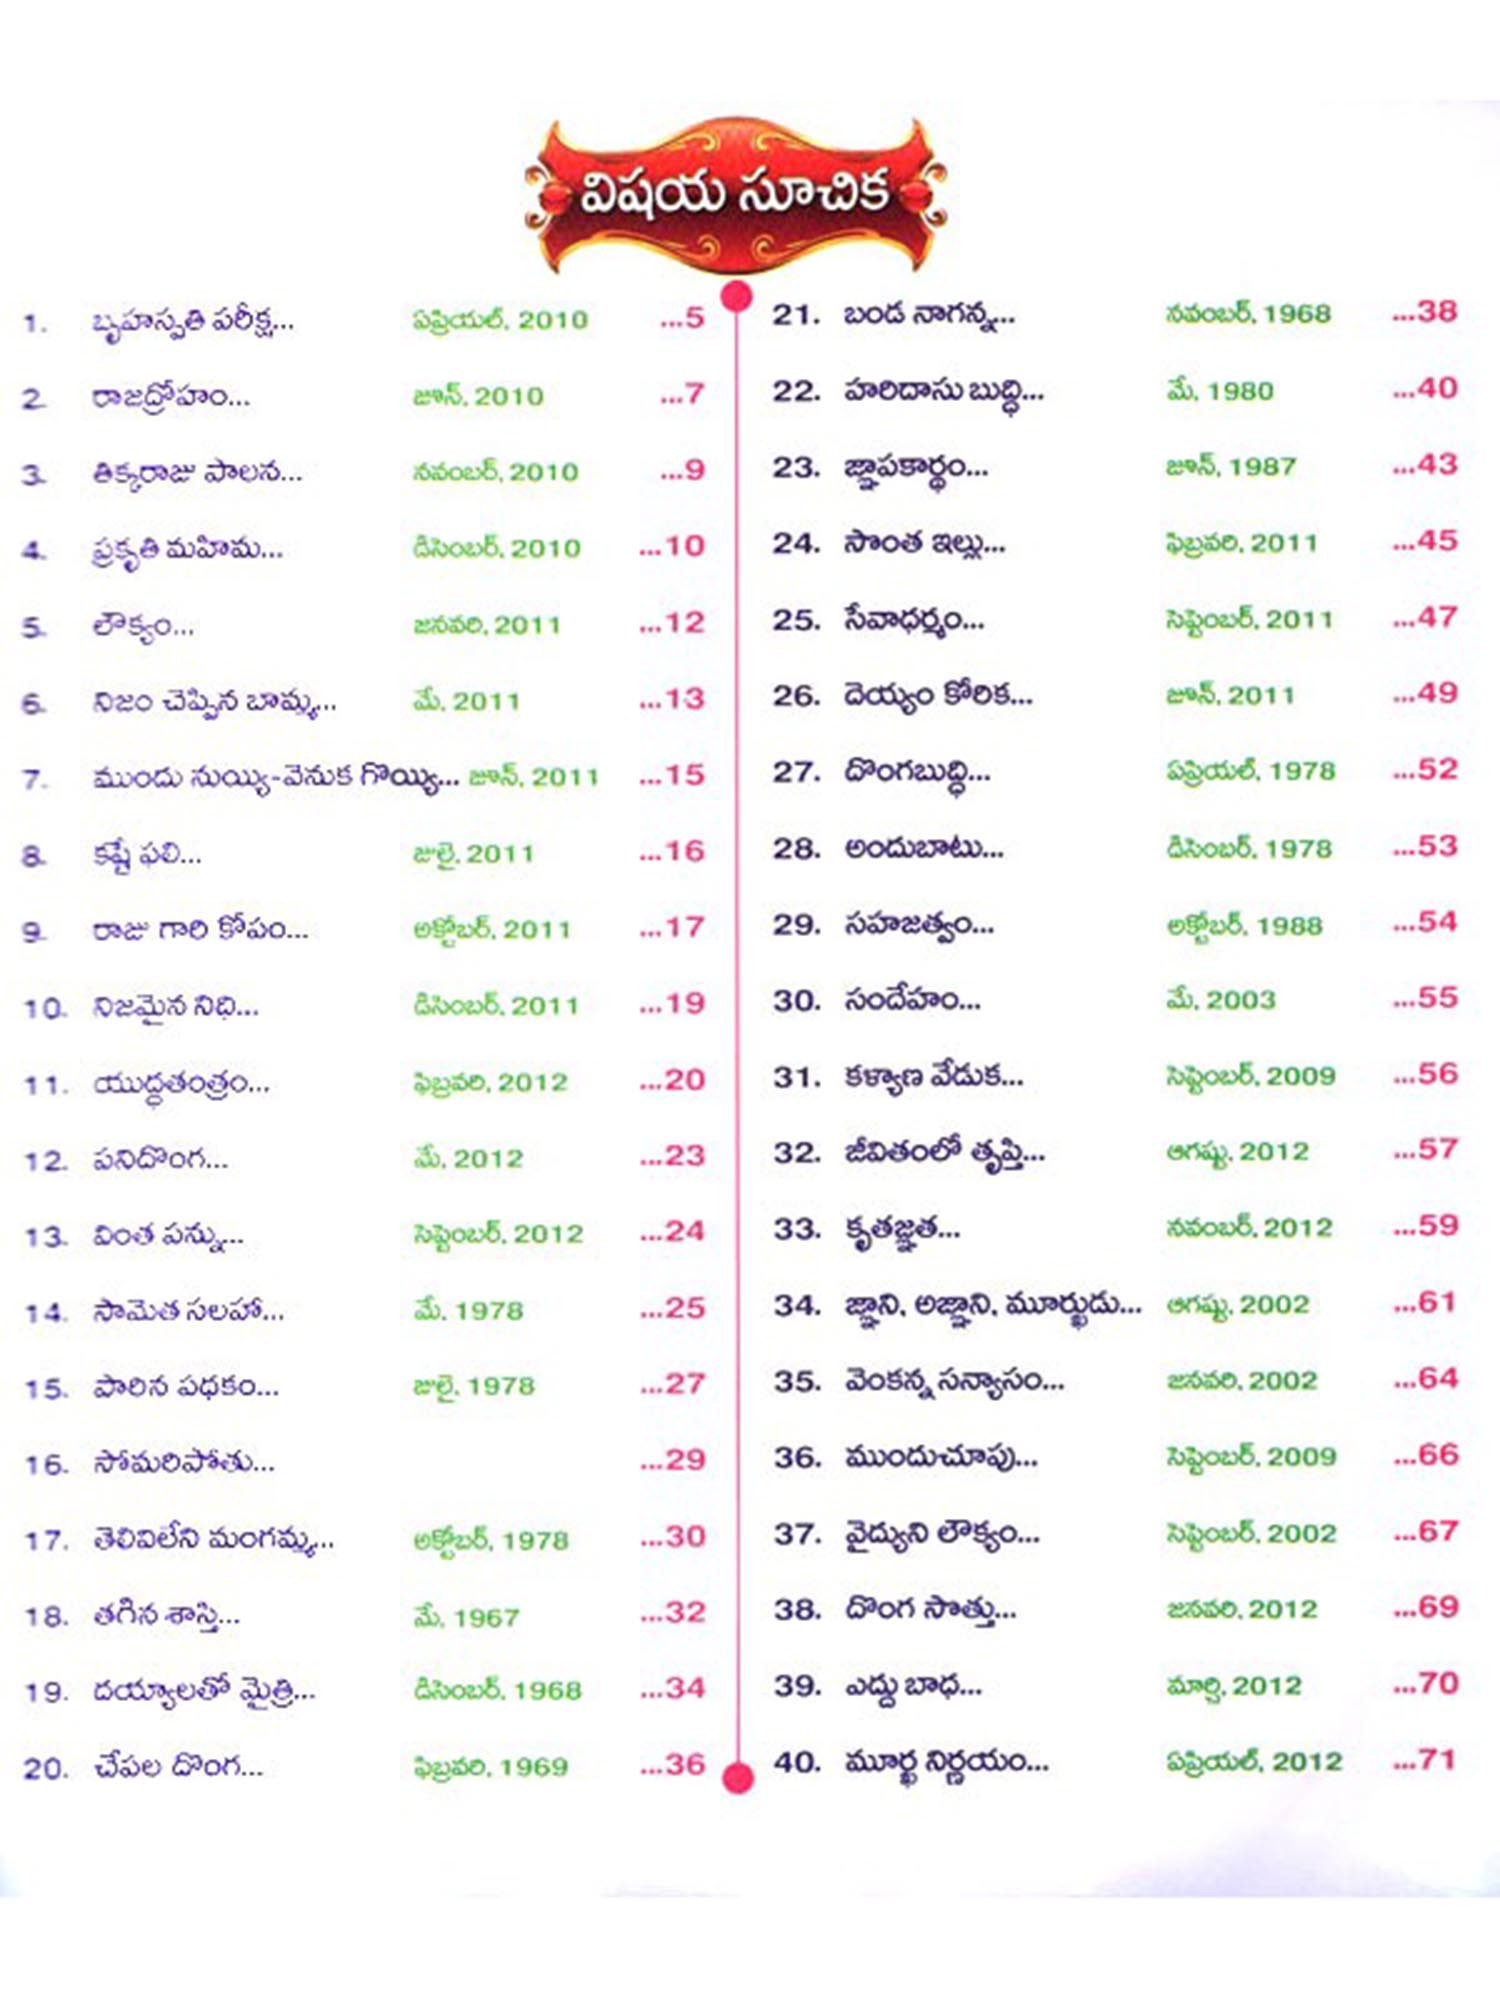 విషయ సూచిక
1. బృహస్పతి పరీక్ష... ఏప్రియల్, 2010 ...5
2. రాజద్రోహం... జూన్, 2010 ...7
3. తిక్కరాజు పాలన... నవంబర్, 2010 ...9
4. ప్రకృతి మహిమ... డిసెంబర్, 2010 ...10
5. లౌక్యం... జనవరి, 2011 ...12
6. నిజం చెప్పిన బామ్మ... మే, 2011 ...13
7. ముందు నుయ్యి-వెనుక గొయ్యి... జూన్, 2011 ...15
8. కష్టే ఫలి... జులై, 2011 ...16
9. రాజు గారి కోపం... అక్టోబర్, 2011 ...17
10. నిజమైన నిధి... డిసెంబర్, 2011 ...19
11. యుద్ధతంత్రం... ఫిబ్రవరి, 2012 ...20
12. పనిదొంగ... మే, 2012 ...23
13. వింత పన్ను... సెప్టెంబర్, 2012 ...24
14. సామెత సలహా... మే, 1978 ...25
15. పారిన పథకం... జులై, 1978 ...27
16. సోమరిపోతు... ...29
17. తెలివిలేని మంగమ్మ... అక్టోబర్, 1978 ...30
18. తగిన శాస్తి... మే, 1967 ...32
19. దయ్యాలతో మైత్రి... డిసెంబర్, 1968 ...34
20. చేపల దొంగ... ఫిబ్రవరి, 1969 ...36
21. బండ నాగన్న... నవంబర్, 1968 ...38
22. హరిదాసు బుద్ధి... మే, 1980 ...40
23. జ్ఞాపకార్థం... జూన్, 1987 ...43
24. సొంత ఇల్లు... ఫిబ్రవరి, 2011 ...45
25. సేవాధర్మం... సెప్టెంబర్, 2011 ...47
26. దెయ్యం కోరిక... జూన్, 2011 ...49
27. దొంగబుద్ధి... ఏప్రియల్, 1978 ...52
28. అందుబాటు... డిసెంబర్, 1978 ...53
29. సహజత్వం... అక్టోబర్, 1988 ...54
30. సందేహం... మే, 2003 ...55
31. కళ్యాణ వేడుక... సెప్టెంబర్, 2009 ...56
32. జీవితంలో తృప్తి... ఆగష్టు, 2012 ...57
33. కృతజ్ఞత... నవంబర్, 2012 ...59
34. జ్ఞాని, అజ్ఞాని, మూర్ఖుడు... ఆగష్టు, 2002 ...61
35. వెంకన్న సన్యాసం... జనవరి, 2002 ...64
36. ముందుచూపు... సెప్టెంబర్, 2009 ...66
37. వైద్యుని లౌక్యం... సెప్టెంబర్, 2002 ...67
38. దొంగ సొత్తు... జనవరి, 2012 ...69
39. ఎద్దు బాధ... మార్చి, 2012 ...70
40. మూర్ఖ నిర్ణయం... ఏప్రియల్, 2012 ...71